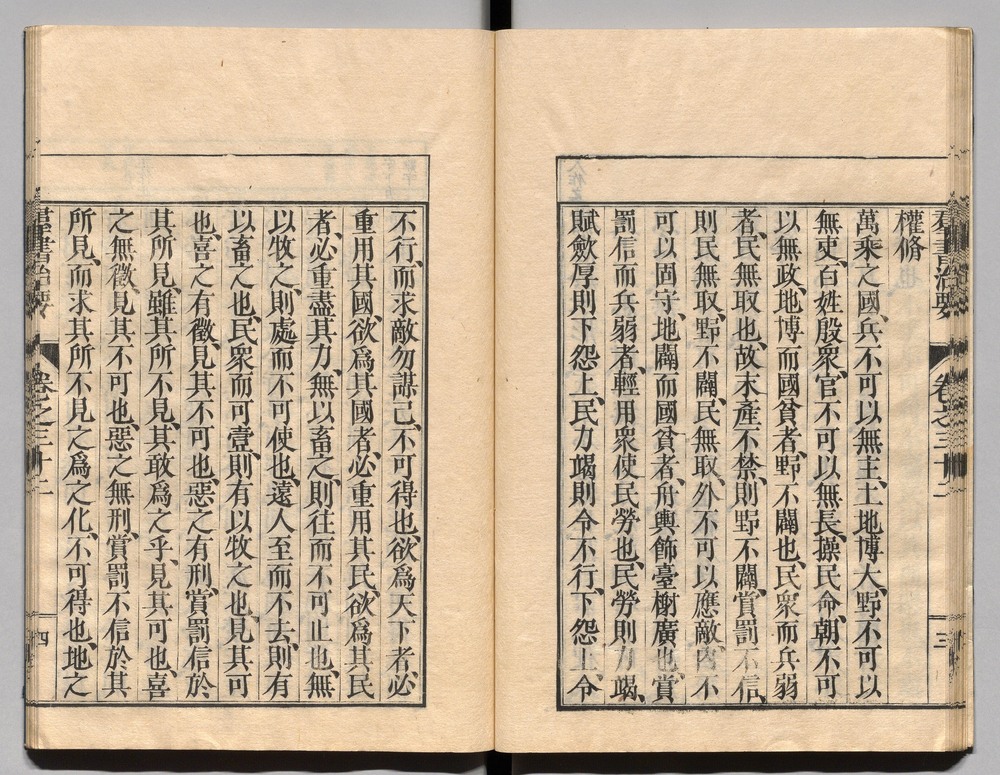 羣書治要 卷之三十二 三
權脩
萬乘之國、兵不可以無主、土地博大、野不可以
無吏、百姓殷衆、官不可以無長、操民命、朝不可
以無政、地博而國貧者、野不闢也、民衆而兵弱
者、民無取也、故末產不禁、則野不闢、賞罰不信、
則民無取、野不闢、民無取、外不可以應敵、內不
可以固守、地闢而國貧者、舟輿飾臺榭廣也、賞
罰信而兵弱者、輕用衆使民勞也、民勞則力竭、
賦斂厚則下怨上、民力竭則令不行、下怨上、令
不行、而求敵勿謀己、不可得也、欲爲天下者、必
重用其國、欲爲其國者、必重用其民、欲爲其民
者、必重盡其力、無以畜之、則往而不可止也、無
以牧之、則處而不可使也、遠人至而不去、則有
以畜之也、民衆而可壹、則有以牧之也、見其可
也、喜之有徵、見其不可也、惡之有刑、賞罰信於
其所見、雖其所不見、其敢爲之乎、見其可也、喜
之無徵、見其不可也、惡之無刑、賞罰不信於其
所見、而求其所不見之爲之化、不可得也、地之
羣書治要 卷之三十二 四